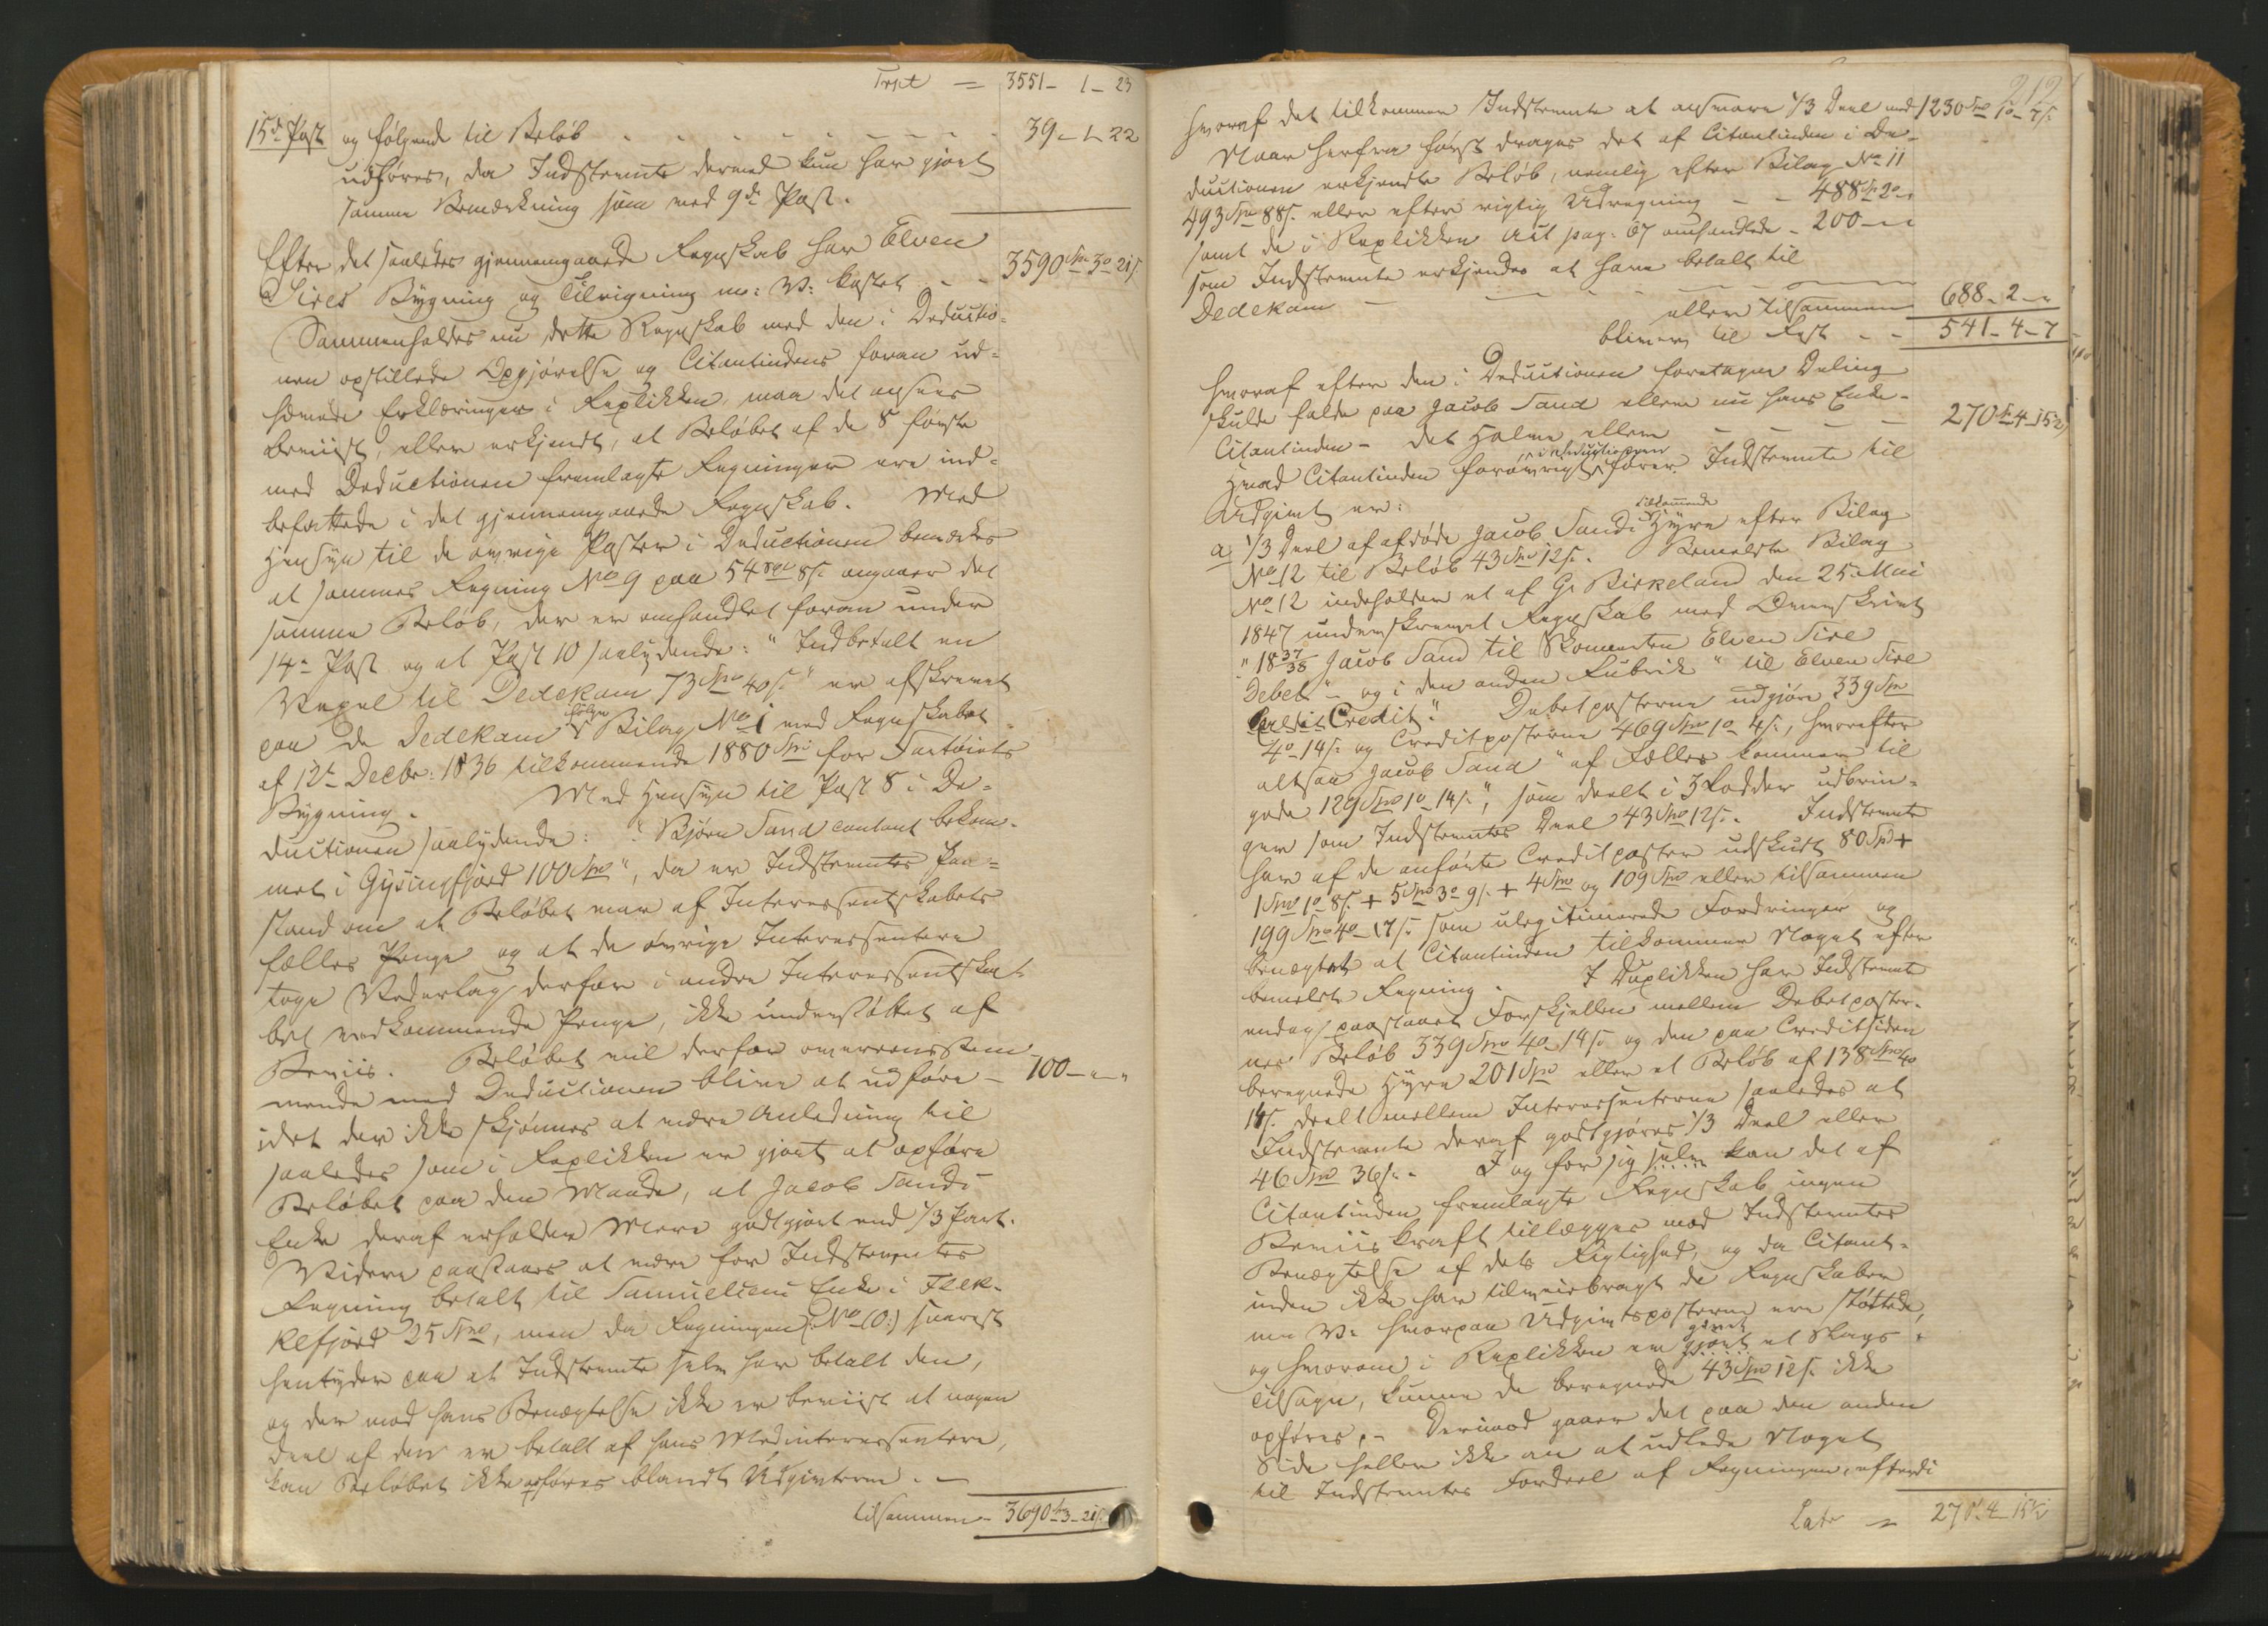 Trspt = 3551 - 1 - 23
15de Post og følgende til Beløb - - - - - - - - 39 - 1 - 22
udføres, da Indstevnte dermed kun har gjort
samme Bemærkning som med 9de Post.
Efter det saaledes gjennemgaaede Regnskab har Elven
Sires Bygning og Tilrigning m: V: kostet - - 3590 Spd 3 o 21 s.
Sammenholdes nu dette Regnskab med den i Deductio-
nen opstillede Opgjørelse og Citantindens foran ud-
hævede Erklæringer i Replikken, maa det ansees
beviist, eller erkjendt, at Beløbet af de 8 første
med Deductionen fremlagte Regninger ere ind-
befattede i det gjennemgaaede Regnskab. Med
Hensyn til de øvrige Poster i Deductionen bemærkes
at sammes Regning No 9 paa 54 Spd 8 s. angaaer det
samme Beløb, der er omhandlet foran under
14de Post og at Post 10 saalydende: "Indbetalt en
Vexel til Dedekam 73 Spd 40 s." er afskrevet
paa de Dedekam ifølge Bilag No 1 med Regnskabet
af 12te Decbr: 1836 tilkommende 1880 Spd for Fartøiets
Bygning. Med Hensyn til Post 8 i De-
ductionen saalydende: "Bjørn Sand contant bekom-
met i Gysingfjord 100 Spd", da er Indstevntes Paa-
stand om at Beløbet var af Interessentskabets
fælles Penge og at de øvrige Interessentere
toge Vederlag derfor i andre Interessentskab
bet vedkommende Penge, ikke understøttet af
Beviis. Beløbet vil derfor overeensstem-
mende med Deductionen blive at udføre - 100 - " - "
idet der ikke skjønnes at være Anledning til
saaledes som i Replikken er gjort at opføre
Beløbet paa den Maade, at Jacob Sands
Enke deraf erholder Mere godtgjort end 1/3 Part.
Videre paastaaes at være for Indstevntes
Regning betalt til Samuelsens Enke i Flek-
kefjord 25 Spd, men da Regningen (: No 10 :) snarest
hentyder paa at Indstevnte selv har betalt den,
og der mod hans Benægtelse ikke er beviist at nogen
Deel af den er betalt af hans Medinteressentere,
kan Beløbet ikke opføres blandt Udgivterne. -
tilsammen - 3690 Spd 3 - 21 s.
212
hvoraf det tilkommer Indstevnte at ansvare 1/3 Deel med 1230 Spd 1 o 7 s.
Naar herfra først drages det af Citantinden i De-
ductionen erkjendte Beløb, nemlig efter Bilag No 11
493 Spd 88 s. eller efter rigtig Udregning - - 488 Spd 2 o - "
samt de i Replikken Act pag: 67 omhandlede - 200 - " - "
som Indstevnte erkjendes at have betalt til
Dedekam - - - - - - -
eller tilsammen 688 - 2 - "
bliver til Rest - - 541 - 4 - 7
hvoraf efter den i Deductionen foretagne Deling
skulde falde paa Jacob Sand eller nu hans Enke -
Citantinden - det Halve eller - - - - 270 Spd 4 - 15 1/2
Hvad Citantinden forøvrigt i Deductionen fører Indstevnte til
Udgivt er:
a, 1/3 Deel af afdøde Jacob Sands tilkomende Hyre efter Bilag
No 12 til Beløb 43 Spd 12 s. Bemeldte Bilag
No 12 indeholder et af G. Birkeland den 25. Mai
1847 underskrevet Regnskab med Overskrivt
"18 37/38 Jacob Sand til Skonnerten Elven Sire
Debet" - og i den anden Rubrik "til Elven Sire
Credit Credit." Debetposterne udgjøre 339 Spd
4 o 14 s. og Creditposterne 469 Spd 1 o 4 s., hvorefter
altsaa Jacob Sand "af Fælles kommer til
gode 129 Spd 1 o 14 s.", som deelt i 3 Lodder udbrin-
ger som Indstevntes Deel 43 Spd 12 s. Indstevnte
har af de anførte Creditposter udskudt 80 Spd +
1 Spd 1 o 8 s. + 5 Spd 3 o 9 s. + 4 Spd og 109 Spd eller tilsammen
199 Spd 4 o - 17 s. som ulegitimerede Fordringer og
benægtet at Citantinden tilkommer Noget efter
bemeldte Regning. I Duplikken har Indstevnte
endog paastaaet Forskjellen mellem Debetposter-
nes Beløb 339 Spd 4 o 14 s. og den paa Creditsiden
beregnede Hyre 201 Spd eller et Beløb af 138 Spd 4 o
14 s. deelt mellem Interessenterne saaledes at
Indstevnte deraf godtgjøres 1/3 Deel eller
46 Spd 36 s. I og for sig selv kan det af
Citantinden fremlagte Regnskab ingen
Beviiskraft tillægges mod Indstevntes
Benægtelse af dets Rigtighed, og da Citant-
inden ikke har tilveiebragt de Regnskaber
m: V: hvorpaa Udgivtsposterne ere støttede,
og hvorom i Replikken er gjort givet et Slags
Tilsagn, kunne de beregnede 43 Spd 12 s. ikke
opføres. - Derimod gaaer det paa den anden
Side heller ikke an at udlede Noget
til Indstevntes Fordeel af Regningen, efterdi
Late = 270 - 4 - 15 1/2